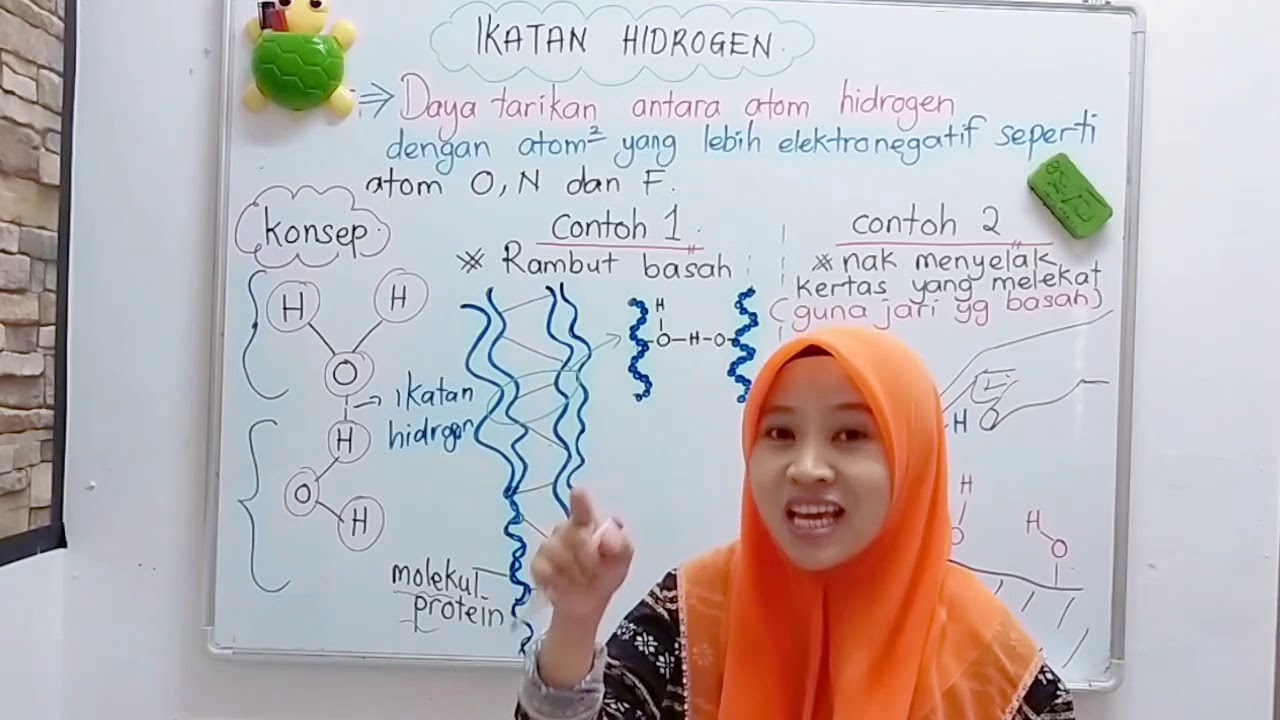 IKATAN HIDROGEN
⇒ Daya tarikan antara atom hidrogen
dengan atom² yang lebih elektronegatif seperti
atom O, N dan F.
Konsep
Contoh 1
* Rambut basah
contoh 2
* nak menyelak
kertas yang melekat
(guna jari yg basah)
H
H
O
ikatan
hidrogen
H
O
H
molekul
protein
H
O-H-O
H O
H
O
H
O